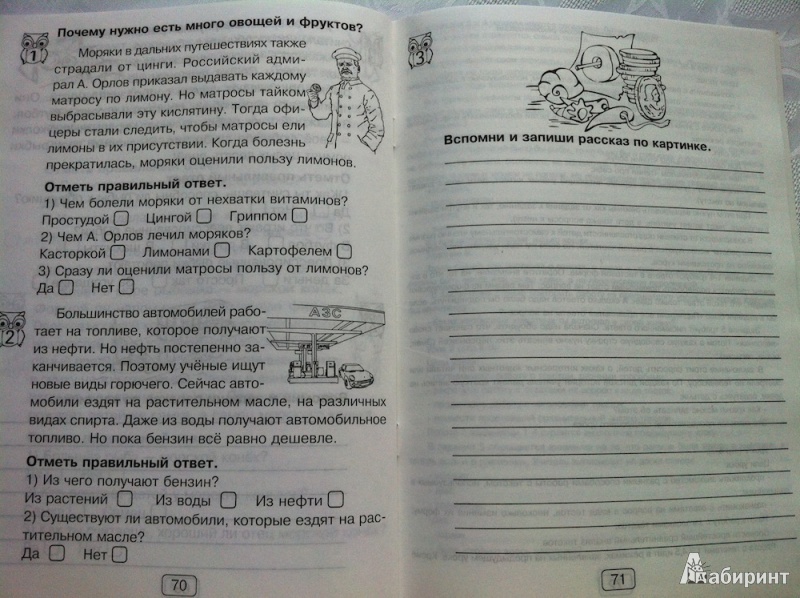 Почему нужно есть много овощей и фруктов?
1
Моряки в дальних путешествиях также
страдали от цинги. Российский адми-
рал А. Орлов приказал выдавать каждому
матросу по лимону. Но матросы тайком
выбрасывали эту кислятину. Тогда офи-
церы стали следить, чтобы матросы ели
лимоны в их присутствии. Когда болезнь
прекратилась, моряки оценили пользу лимонов.
Отметь правильный ответ.
1) Чем болели моряки от нехватки витаминов?
Простудой Цингой Гриппом
2) Чем А. Орлов лечил моряков?
Касторкой Лимонами Картофелем
3) Сразу ли оценили матросы пользу от лимонов?
Да Нет
2
Большинство автомобилей рабо-
тает на топливе, которое получают
из нефти. Но нефть постепенно за-
канчивается. Поэтому учёные ищут
новые виды горючего. Сейчас авто-
мобили ездят на растительном масле, на различных
видах спирта. Даже из воды получают автомобильное
топливо. Но пока бензин всё равно дешевле.
АЗС
Отметь правильный ответ.
1) Из чего получают бензин?
Из растений Из воды Из нефти
2) Существуют ли автомобили, которые ездят на рас-
тительном масле?
Да Нет
70
3
Вспомни и запиши рассказ по картинке.
71
Лабиринт